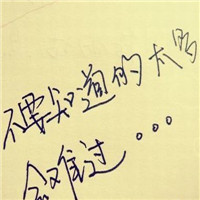 不要知道的太多
会难过...